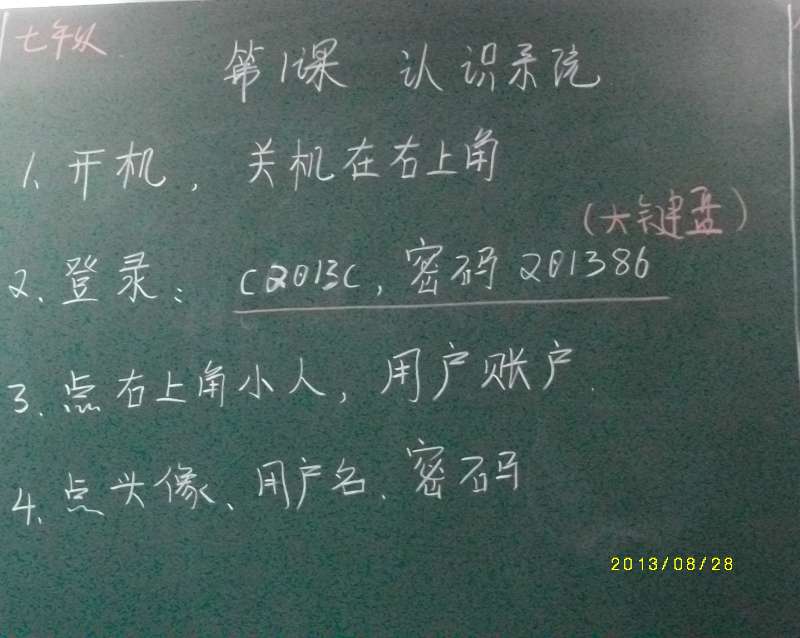 七年级
第1课 认识系统
1、开机，关机在右上角
(大键盘)
2、登录：c2013c，密码201386
3、点右上角小人，用户账户.
4、点头像、用户名、密码
2013/08/28